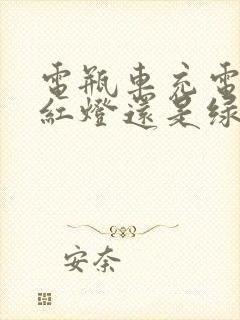 電瓶車充電
紅燈還是綠
安奈